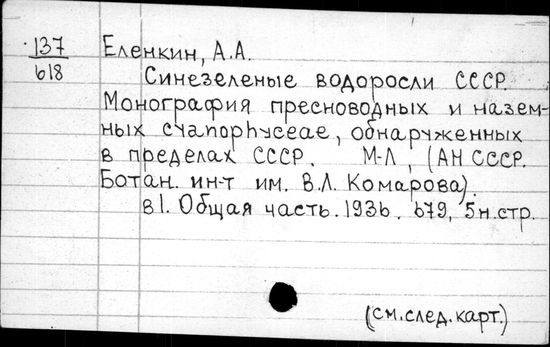 137
618
Еленкин, А.А.
Синезеленые водоросли СССР.
Монография пресноводных и назем-
ных cyanophyceae, обнаруженных
в пределах СССР. М-Л, (АН СССР.
Ботан. ин-т им. В.Л. Комарова).
в1. Общая часть. 1936. 679, 5н.стр.
(см.след.карт.)